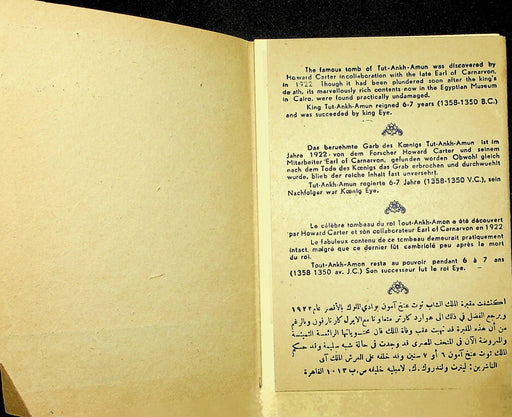 The famous tomb of Tut-Ankh-Amun was discovered by
Howard Carter in collaboration with the late Earl of Carnarvon,
in 1922. Though it had been plundered soon after the king's
death, its marvellously rich contents now in the Egyptian Museum
in Cairo, were found practically undamaged.
King Tut-Ankh-Amun reigned 6-7 years (1358-1350 B.C.)
and was succeeded by king Eye.
Das beruehmte Garb des Kœnigs Tut-Ankh-Amun ist im
Jahre 1922 - von dem Forscher Howard Carter und seinem
Mitarbeiter Earl of Carnarvon, gefunden worden Obwohl gleich
nach dem Tode des Kœnigs das Grab erbrochen und durchwuehlt
wurde, blieb der reiche Inhalt fast unversehrt.
Tut-Ankh-Amun regierte 6-7 Jahre (1358-1350 V.C.), sein
Nachfolger war Kœnig Eye.
Le célèbre tombeau du roi Tout-Ankh-Amon a été découvert
par Howard Carter et son collaborateur Earl of Carnarvon en 1922
Le fabuleux contenu de ce tombeau demeurait pratiquement
intact, malgré que ce dernier fût cambriolé peu après la mort
du roi.
Tout-Ankh-Amon resta au pouvoir pendant 6 à 7 ans
(1358-1350 av. J.C.) Son successeur fut le roi Eye.
اكتشفت مقبرة الملك الشاب توت عنخ آمون بوادي الملوك بالأقصر عام ١٩٢٢
ويرجع الفضل في ذلك الى هوارد كارتر متعاونا مع الايرل كارنارفون وبالرغم
من أن هذه المقبرة قد نهبت عقب وفاة الملك فان محتوياتها الرائعة الثمينة
والمعروضة الآن في المتحف المصرى قد وجدت فى حالة شبه سليمة وقد حكم
الملك توت عنخ آمون ٦ أو ٧ سنين وقد خلفه على العرش الملك آى
الناشرين : لينرت ولندروك ك. لامبليه خليفه ص.ب ١٠١٣ القاهرة